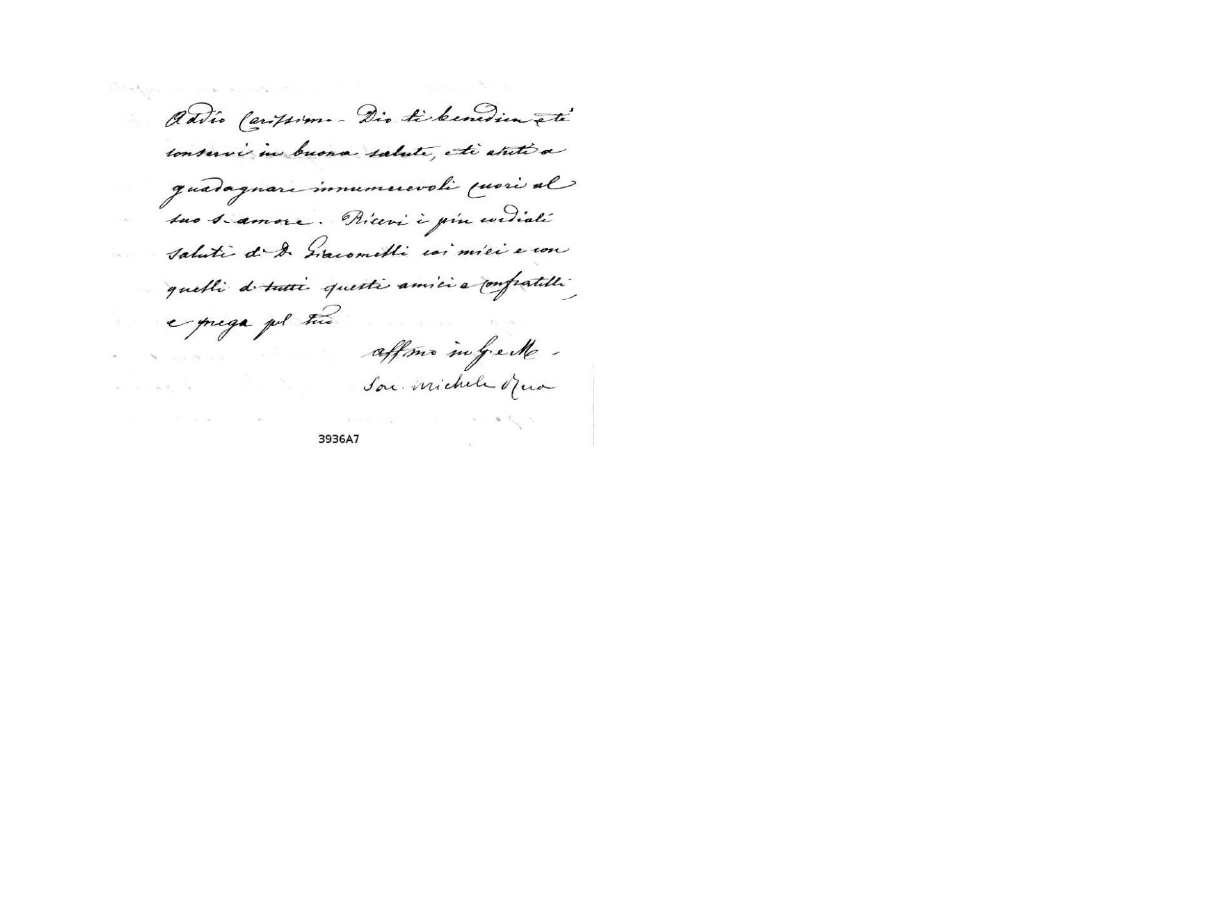 Addio Carissimo - Dio ti benedica e ti
conservi in buona salute, e ti aiuti a
guadagnare innumerevoli cuori al
suo s. amore. Ricevi i più cordiali
saluti di D. Giacomelli coi miei e con
quelli di tutti questi amici e confratelli
e prega pel tuo
affmo in G. e M.
Sac. Michele Rua
3936A7